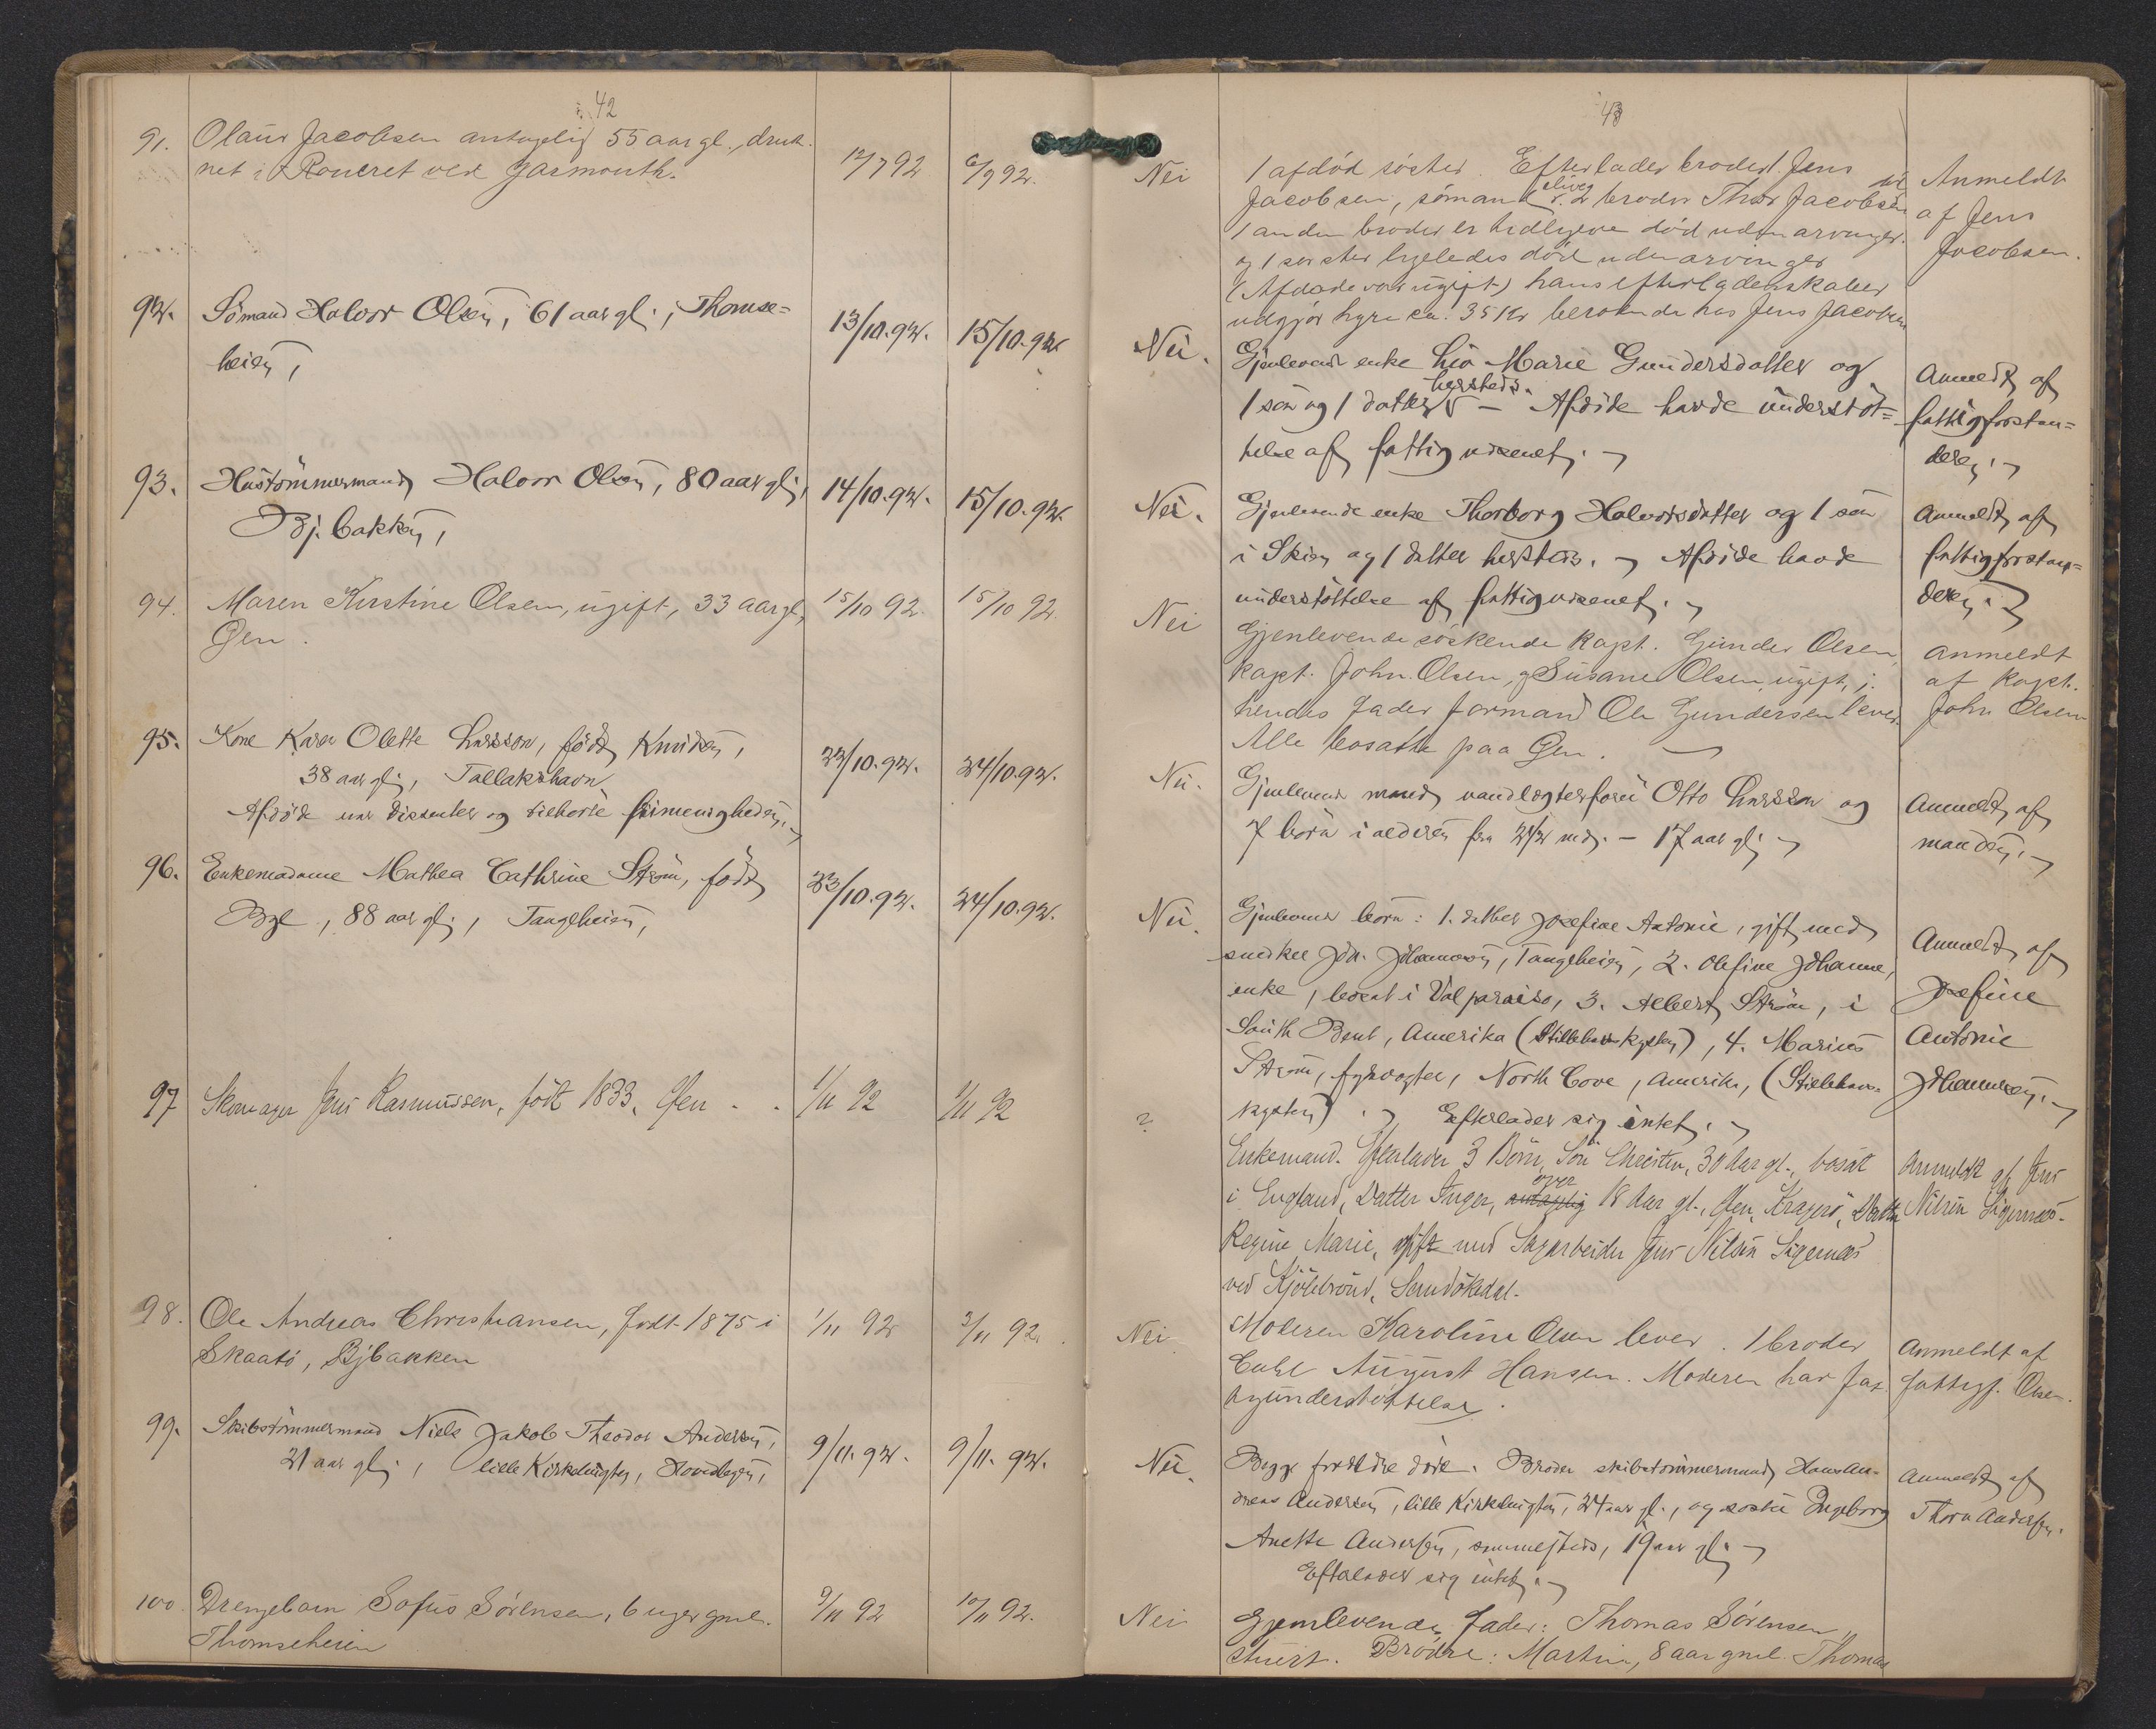 42
91. Olaus Jacobsen antagelig 55 aar gl., druk-
net i Roucret ved Yarmouth.
12/7 92
6/9 92.
92. Sömand Halvor Olsen, 61 aar gl., Thomse-
heien,
13/10.92.
15/10.92.
93. Hustömmermand Halvor Olsen, 80 aar gl.,
Bj.bakken,
14/10.92.
15/10.92.
94. Maren Kirstine Olsen, ugift, 33 aar gl.
Øen.
15/10 92.
15/10 92.
95. Kone Karen Olette Larsson, född Knudsen,
38 aar gl., Tallakshavn
Afdöde var dissenter og tilhörte frimenigheden.
23/10.92.
24/10.92.
96. Enkemadame Mathea Cathrine Ström, född
, 88 aar gl., Tangeheien,
23/10.92.
24/10.92.
97 Skomager Jens Rasmussen, födt 1833, Øen
1/11 92
1/11 92
98. Ole Andreas Christiansen, født 1875 i
Skaatö, Bjbakken
1/11 92
3/11 92.
99. Skibstömmermand Niels Jakob Theodor Andersen,
21 aar gl., lille Kirkelugten,
9/11.92.
9/11.92.
100. Drengebarn Sofus Sörensen, 6 uger gml.
Thomseheien
9/11 92
10/11 92.
43
Nei
1 afdöd söster. Efterlader broder 1. Jens
Jacobsen, sömand 2 broder Thor Jacobsen
1 anden broder er tidligere död uden arvinger.
og 1 söster ligeledes död uden arvinger
(Afdöde var ugift) hans efterladenskaber
udgjör hyre ca. 35 Kr beroende hos Jens Jacobsen
Anmeldt
af Jens
Jacobsen.
Nei.
Gjenlevende enke Marie Gundersdatter og
hersteds.
1 sön og 1 datter – Afdöde havde understöt-
telse af fattigvæsenet.
Anmeldt af
fattigforstan-
deren.
Nei.
Gjenlevende enke Thorborg Halvorsdatter og 1 sön
i Skien og 1 datter hersteds. Afdöde havde
understöttelse af fattigvæsenet.
Anmeldt af
fattigforstan-
deren.
Nei
Gjenlevende söskende Kapt. Gunder Olsen,
Kapt. John Olsen, og Susane Olsen, ugift,
hendes Fader formand Ole Gundersen lever.
Alle bosatte paa Øen.
Anmeldt
af Kapt.
John Olsen
Nei.
Gjenlevende mand Otto Larsson og
7 börn i alderen fra 2 1/2 md. – 17 aar gl.
Anmeldt af
manden.
Nei.
Gjenlevende börn: 1. datter Josefine Antonie, gift med
snedker Joh. Johannesen, Tangeheien, 2. Olefine Johanne,
enke, bosat i Valparaiso, 3. Albert Ström, i
South Bent, Amerika (Stillehavskysten), 4. Marius
Ström, fyrvogter, North Cove, Amerika, (Stillehavs-
kysten). Efterlader sig intet.
Anmeldt af
Josefine
Antonie
Johannesen.
?
Enkemand. Efterlader 3 Börn, Sön Christen, 30 Aar gl., bosat
over
i England, Datter Inger, antagelig 18 Aar gl., Øen, Kragerö, Datter
Regine Marie, gift med Sagarbeider Jens Nilsen Sigernæs
ved Kjölebrönd, Sandökedal.
Anmeldt af Jens
Nilsen Sigernæs.
Nei
Moderen Karoline Olsen lever. 1 broder
Carl August Hansen. Moderen har fat-
tigunderstöttelse.
Anmeldt af
fattigf.
Nei.
Begge forældre döde. Broder skibstömmermand Hans An-
dreas Andersen, lille Kirkelugten, 24 aar gl., og söster Ingeborg
Anette Andersen, sammesteds, 19 aar gl.
Efterlader sig intet.
Anmeldt af
Thora Andersen.
Nei
Gjenlevende Fader: Thomas Sörensen,
stuert. Brödre: Martin, 8 aar gml. Thomas